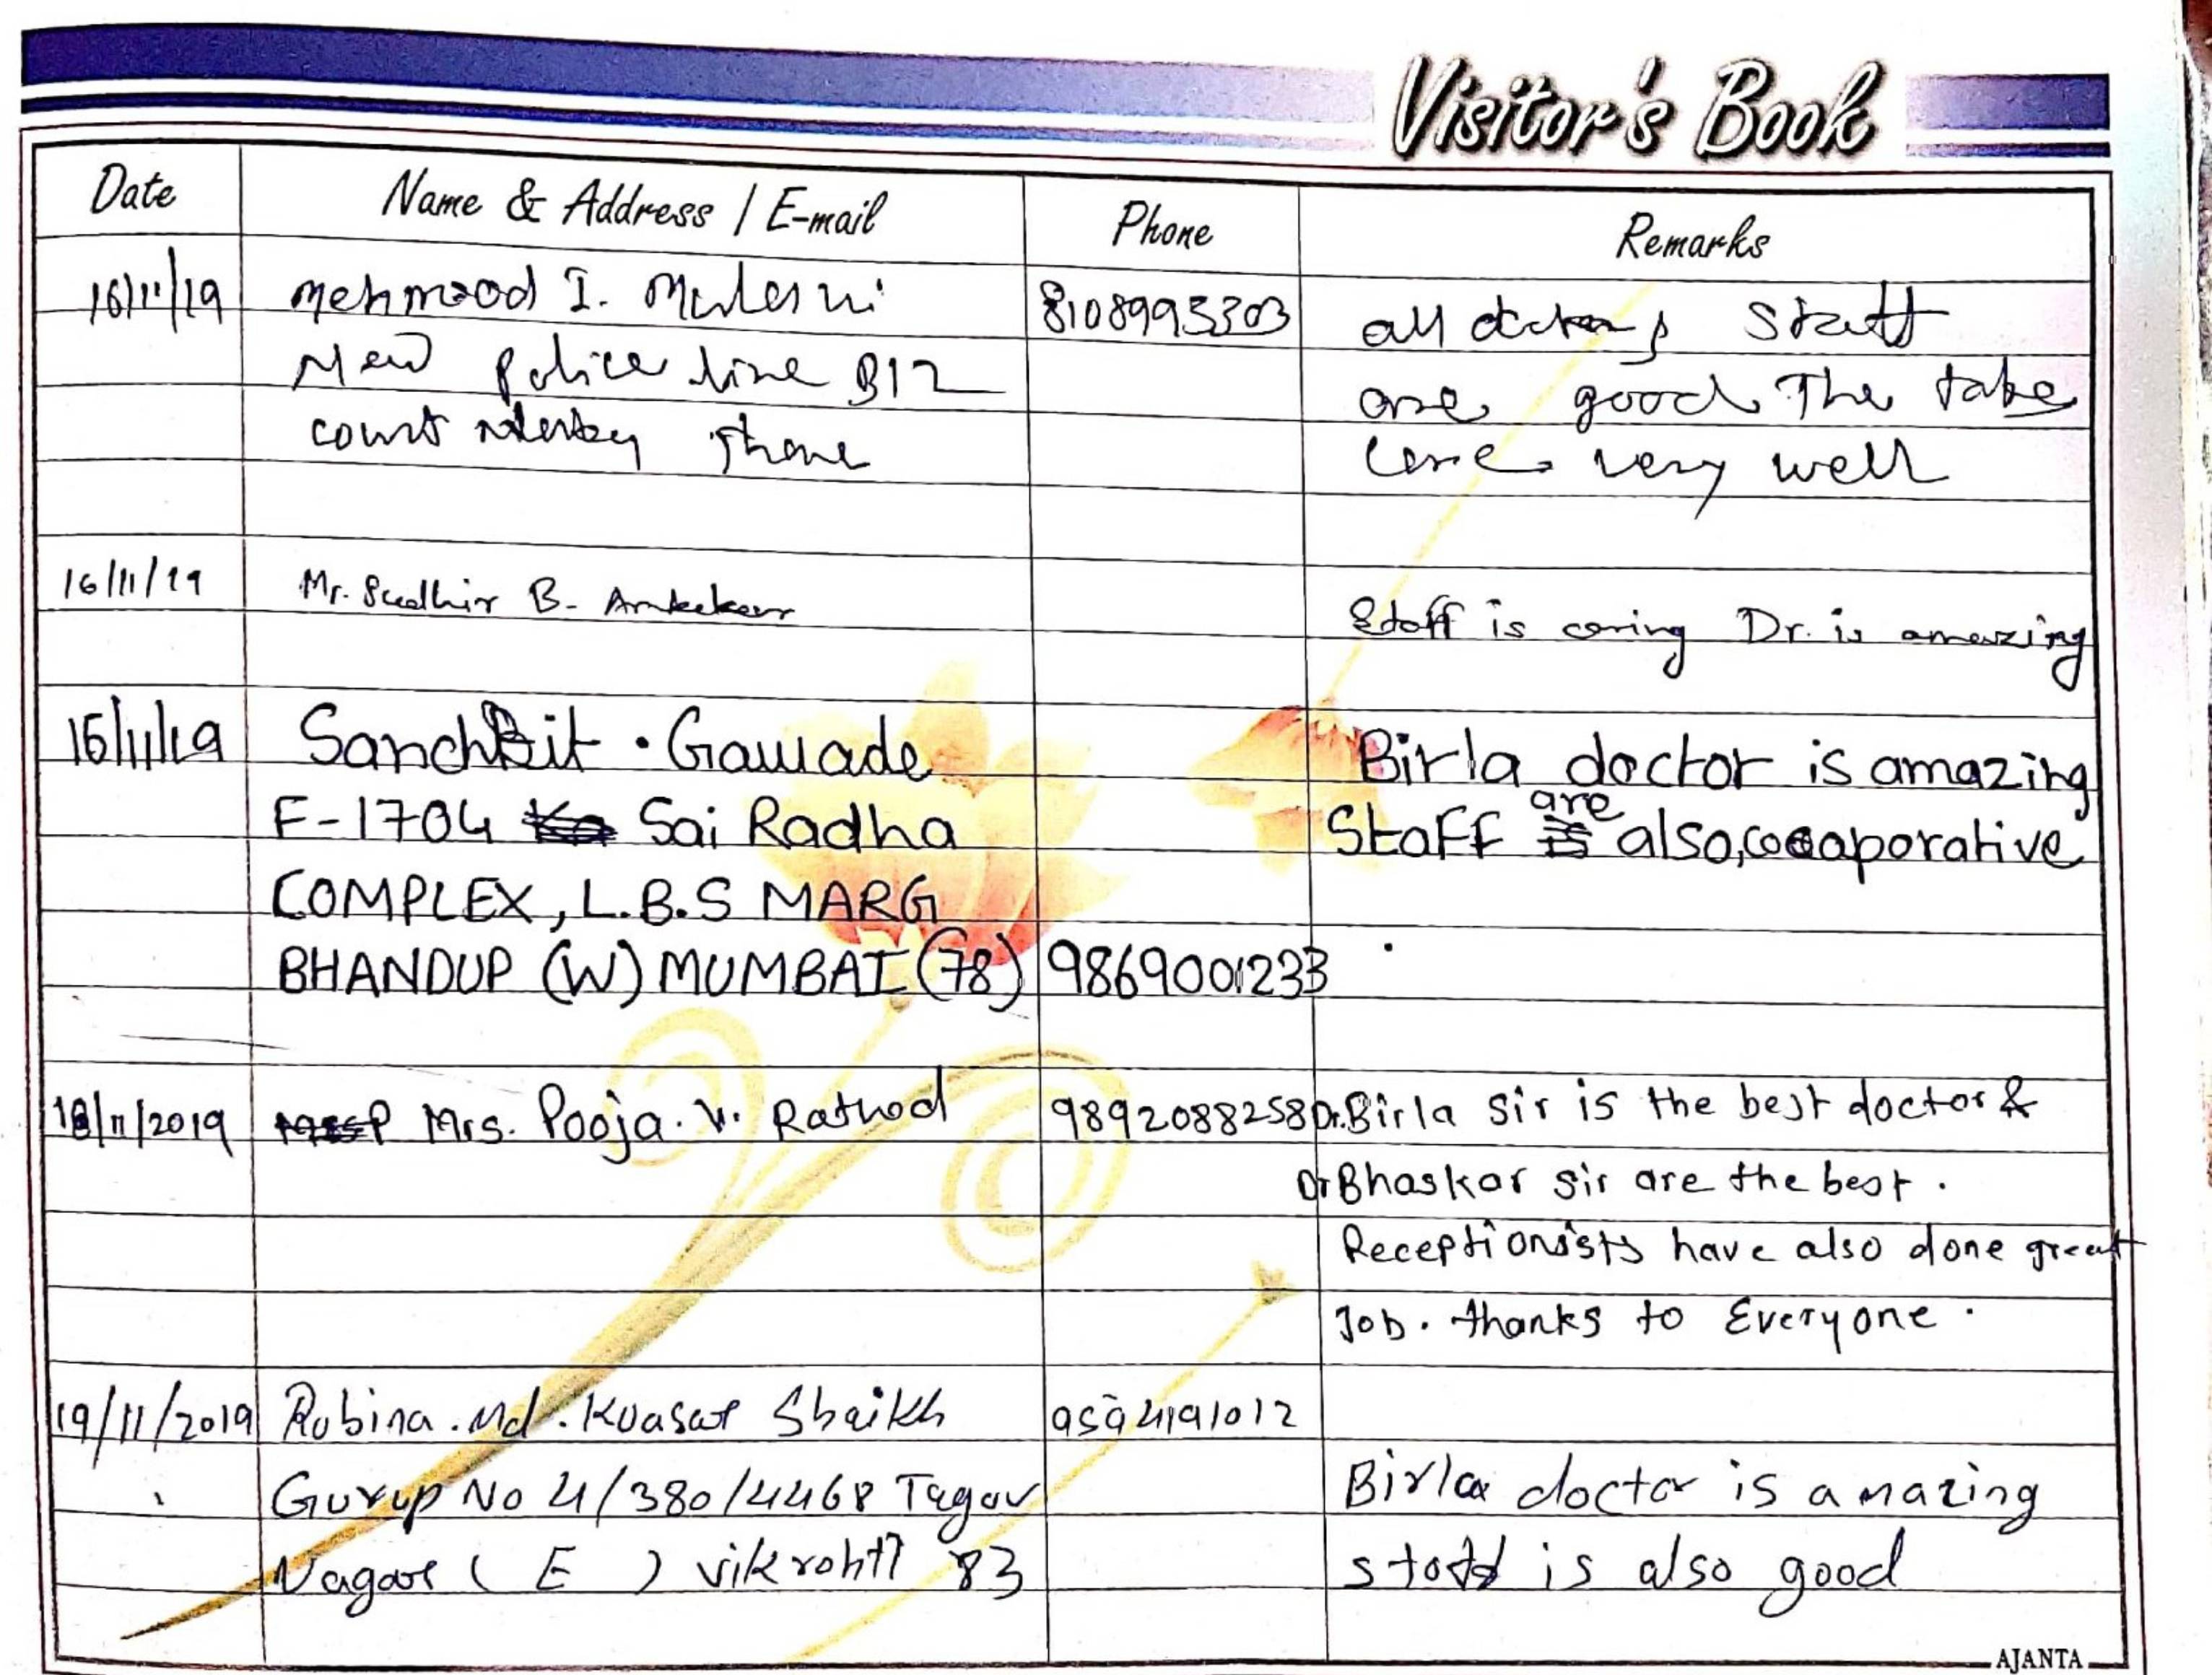 Visitor's Book
Date Name & Address / E-mail Phone Remarks
16/11/19 Mehmood I. 8108995303 all staff
New police line B12 are good The take
court thane care very well
16/11/19 Mr. Sudhir B. Staff is caring Dr. is amazing
15/11/19 Sanchit . Gawade Birla doctor is amazing
F-1704 Sai Radha Staff are also, cooaporative
COMPLEX, L.B.S MARG
BHANDUP (W) MUMBAI (78) 9869001233
18/11/2019 Mrs. Pooja. V. Rathod 9892088258 Dr. Birla sir is the best doctor &
Dr Bhaskar sir are the best .
Receptionists have also done great
Job. thanks to Everyone .
19/11/2019 Rubina . Md . Kuasar Shaikh 9594191012
Gurup No 4/380/4468 Tagor Birla doctor is amazing
Nagar ( E ) vikrohli 83 is also good
AJANTA